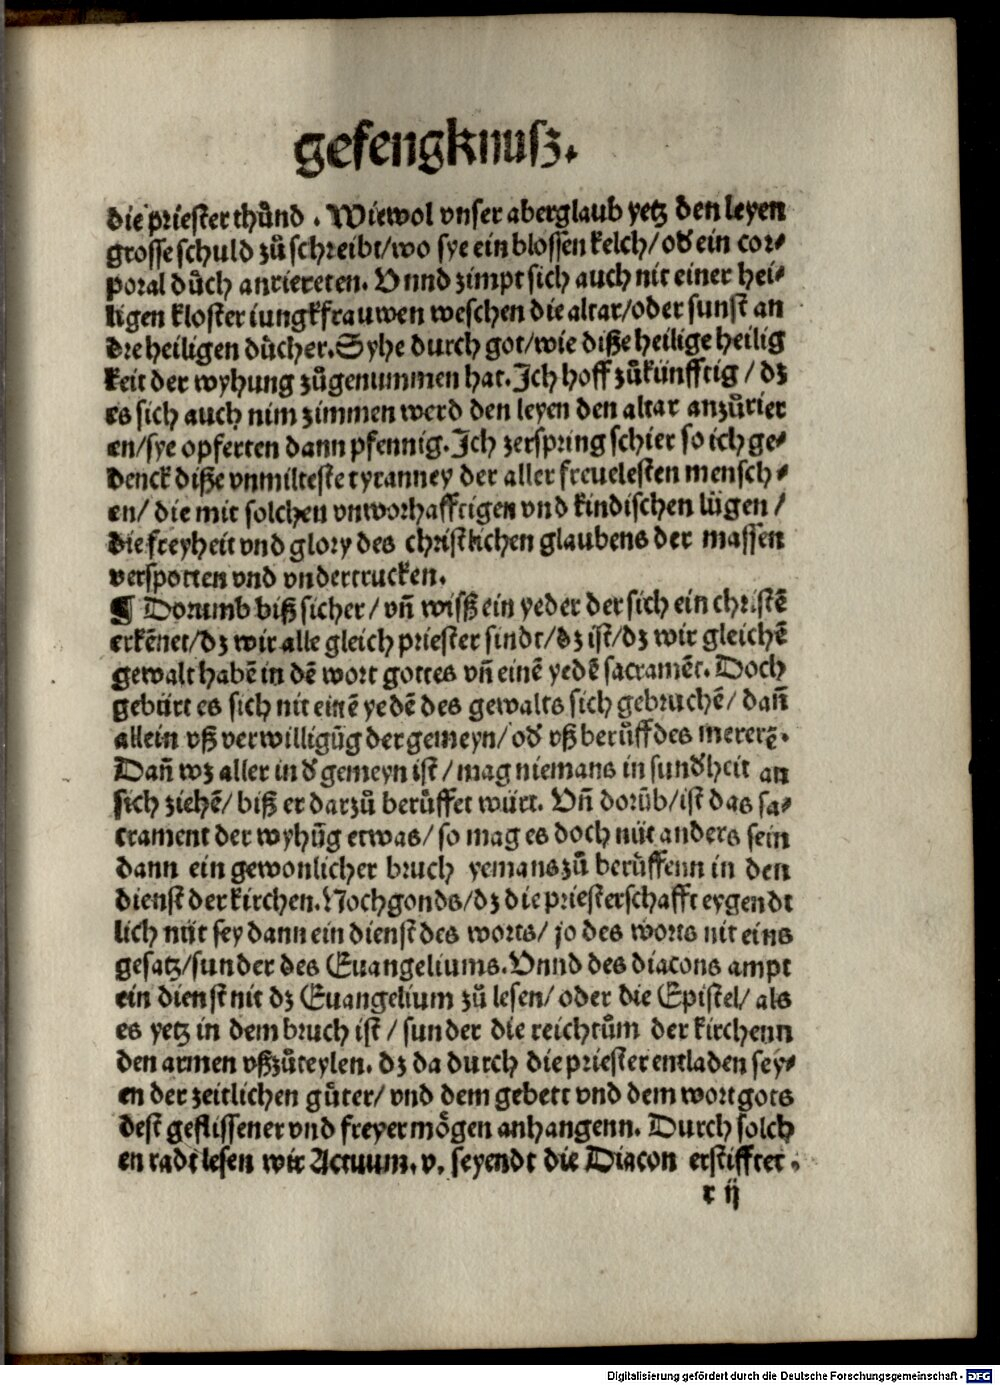 gefengknusz.
die priester thůnd . Wiewol vnser aberglaub yetz den leyen
grosse schuld zů schreibt/wo sye ein blossen kelch/ od̕ ein cor⸗
poral důch anriereten. Vnnd zimpt sich auch nit einer hei⸗
ligen kloster iungkfrauwen weschen die altar/oder sunst an
dre heiligen důcher. Syhe durch got/wie diße heilige heilig
keit der wyhung zůgenummen hat. Ich hoff zůkünfftig / dz
es sich auch nim zimmen werd den leyen den altar anzůrier
en/sye opferten dann pfennig. Ich zerspring schier so ich ge⸗
denck diße vnmilteste tyranney der aller freuelesten mensch⸗
en/ die mit solchen vnworhafftigen vnd kindischen lügen /
die freyheit vnd glory des christlichen glaubens der massen
verspotten vnd vndertrucken.
¶ Dorumb biß sicher/ vñ wissß ein yeder der sich ein christē
erkēnet/dz wir alle gleich priester sindt/dz ist/dz wir gleichē
gewalt habē in dē wort gottes vñ einē yedē sacramēt. Doch
gebürt es sich nit einē yedē des gewalts sich gebruchē/ dañ
allein vß verwilligūg der gemeyn/ od̕ vß berůff des mererē.
Dañ wz aller in d̕ gemeyn ist / mag niemans in sund̕heit an
sich ziehē/ biß er darzů berůffet würt. Vñ dorūb/ist das sa⸗
crament der wyhūg etwas/ so mag es doch nüt anders sein
dann ein gewonlicher bruch yemans zů berůffenn in den
dienst der kirchen. Nochgonds/dz die priesterschafft eygendt
lich nüt sey dann ein dienst des worts/ jo des worts nit eins
gesatz/sunder des Euangeliums. Vnnd des diacons ampt
ein dienst nit dz Euangelium zů lesen/ oder die Epistel/ als
es yetz in dem bruch ist / sunder die reichtům der kirchenn
den armen vßzůteylen. dz da durch die priester entladen sey⸗
en der zeitlichen gůter/ vnd dem gebett vnd dem wort gots
dest geflissener vnd freyer mögen anhangenn. Durch solch
en radt lesen wir Actuum. v. seyendt die Diacon erstifftet.
r ij
Digitalisierung gefördert durch die Deutsche Forschungsgemeinschaft - DFG